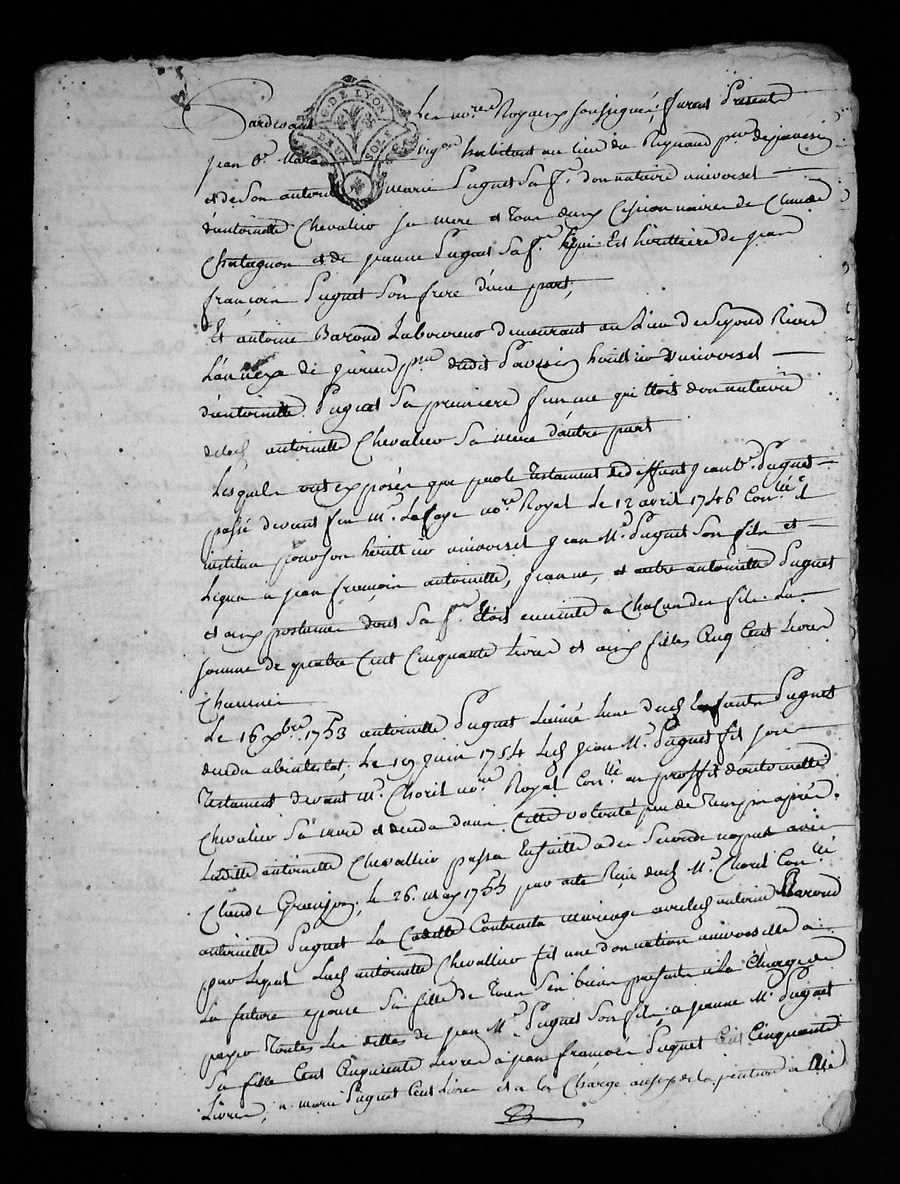 Pardevant Les no.res Royaux soussignés, furent Presents
jean B.te habitant au lieu du Reynaud p.sse de javesin
et de son autorité marie Puguet sa f.e donnataire universel
d'antoinette Chevalier sa mere et tous deux Cessionnaires de Claude
Chatagnon et de jeanne Puguet sa f.e qui Est héritière de jean
françois Puguet son frere d'une part;
Et antoine Barond Laboureur demeurant au Lieu de Segond Riere
L'annexe de p.sse dudit Pavesin héritier universel
d'antoinette Puguet sa premiere femme qui etoit donnataire
de lad antoinette Chevalier sa mere d'autre part
Lesquels ont exposés que par le testament de deffunt jean b.te Puguet
passé devant feu M.e Lafaye no.re Royal Le 12 avril 1746 Con.llé il
institua pour son heritier universel jean M.e Puguet son fils et
Legua à jean françois antoinette, jeanne, et autre antoinette Puguet
et aux postumes dont sa f.e Etoit enceinte a Chacun des fils La
somme de quatre Cent Cinquante Livres et aux filles Cinq Cent Livres
Chacunes
Le 16 xbre 1753 antoinette Puguet Lainée Lune desd Enfants Puguet
deceda abintestat, Le 19 juin 1754 Led jean M.e Puguet fit son
testament devant M.e Chorel no.re Royal Con.llé au proffit d'antoinette
Chevalier sa mere et deceda dans Cette volonté peu de Temps après.
Laditte antoinette Chevallier passa Ensuitte a de Secondes noces avec
Claude Granjon, le 26. may 1755 par acte Reçu dud M.e Chorel Con.llé
antoinette Puguet La Cadette Contracta mariage avec led antoine Barond
par Lequel Lad antoinette Chevallier fit une donnation universelle a
La future epouse sa fille de Tous ses biens presents a La Charge de
payer Toutes Les dettes de jean M.e Puguet son fils, a jeanne M.e Puguet
sa fille Cent Cinquante Livres a jean francois Puguet Cent Cinquante
Livres, a marie Puguet Cent Livres et a la Charge aussy de la pention a
G. DE LYON
SOLS